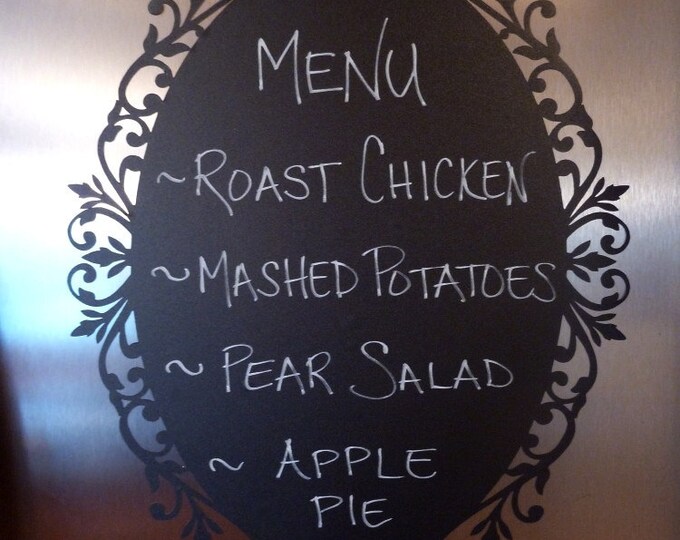 MENU
~ROAST CHICKEN
~MASHED POTATOES
~ PEAR SALAD
~ APPLE
PIE